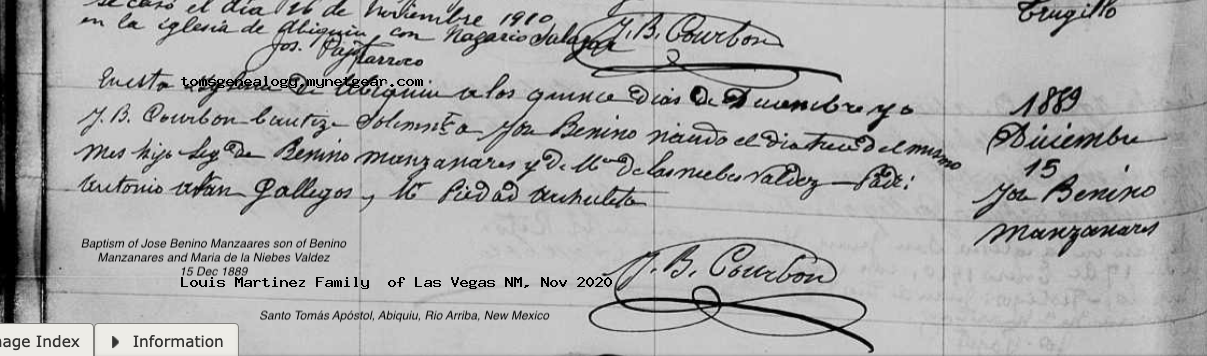 se casó el día 16 de Noviembre 1910
en la iglesia de Abiquiu con Nazario Salazar
Jos. Pajot Parroco
J. B. Courbon
Trugillo
tomsgenealogy.mynetgear.com
En esta Iglesia de Abiquiu a los quince dias de Diciembre yo
J. B. Courbon bautize Solemnte a Jose Benino nacido el dia trece del mismo
mes hijo Leg. de Benino Manzanares y de Ma de las niebes Valdez Padi:
Antonio Gallegos, y Ma Piedad Archuleta
1889
Diciembre
15
Jose Benino
Manzanares
Baptism of Jose Benino Manzaares son of Benino
Manzanares and Maria de la Niebes Valdez
15 Dec 1889
Louis Martinez Family of Las Vegas NM, Nov 2020
J. B. Courbon
Santo Tomás Apóstol, Abiquiu, Rio Arriba, New Mexico
nage Index
Information